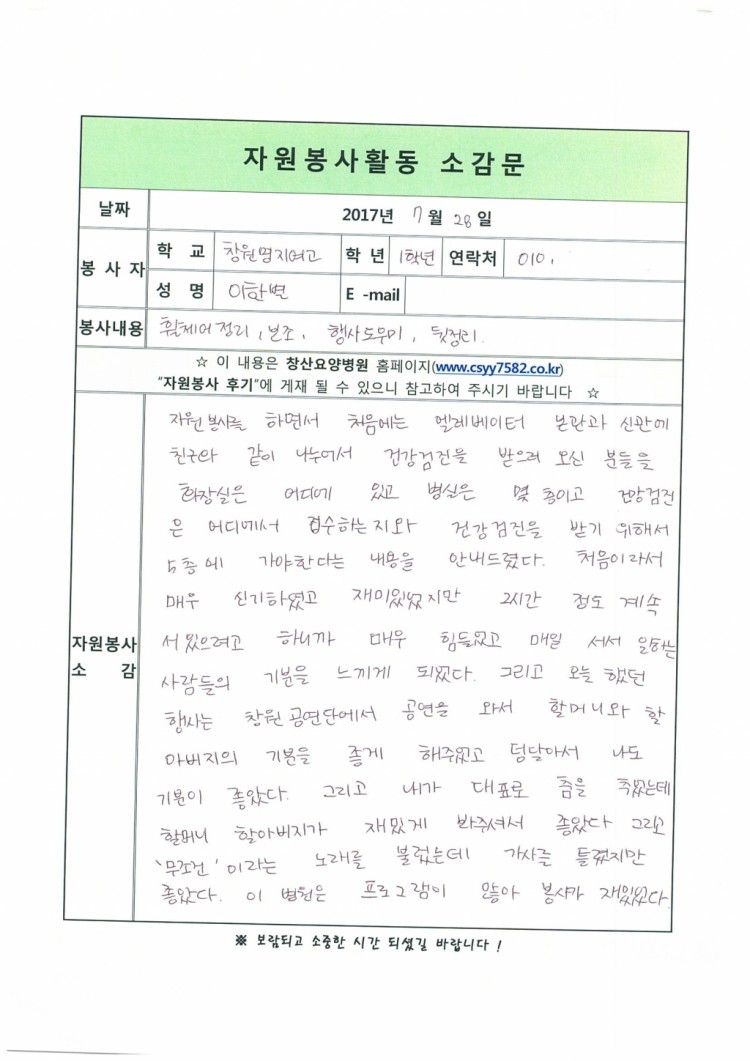 자원봉사활동 소감문
날짜 2017년 7월 28일
봉사자 학교 창원명지여고 학년 1학년 연락처 010,
성명 E-mail
봉사내용 휠체어정리, 보조, 행사도우미, 뒷정리.
☆ 이 내용은 창산요양병원 홈페이지(www.csyy7582.co.kr)
"자원봉사 후기"에 게재 될 수 있으니 참고하여 주시기 바랍니다 ☆
자원봉사 소감
자원봉사를 하면서 처음에는 엘레베이터 본관과 신관에
친구와 같이 나누어서 건강검진을 받으러 오신 분들을
화장실은 어디에 있고 병실은 몇 층이고 건강검진
은 어디에서 접수하는지와 건강검진을 받기 위해서
5층에 가야한다는 내용을 안내드렸다. 처음이라서
매우 신기하였고 재미있었지만 2시간 정도 계속
서있으려고 하니까 매우 힘들었고 매일 서서 일하는
사람들의 기분을 느끼게 되었다. 그리고 오늘 했던
행사는 창원 공연단에서 공연을 와서 할머니와 할
아버지의 기분을 좋게 해주었고 덩달아서 나도
기분이 좋았다. 그리고 내가 대표로 춤을 추었는데
할머니 할아버지가 재밌게 봐주셔서 좋았다 그리고
'무조건'이라는 노래를 불렀는데 가사를 틀렸지만
좋았다. 이 병원은 프로그램이 많아 봉사가 재밌었다.
※ 보람되고 소중한 시간 되셨길 바랍니다 !